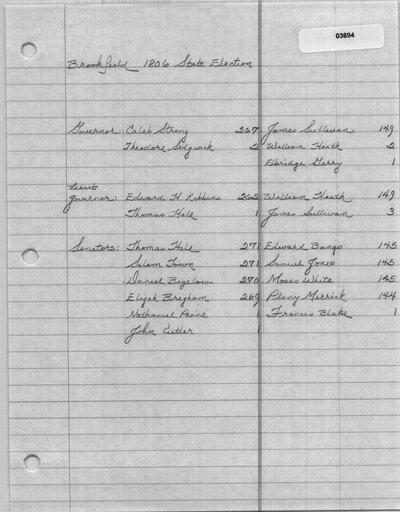 03694
Brookfield 1806 State Election
Governor: Caleb Strong 267 James Sullivan 149
Theodore Sedgwick 2 William Heath 2
Elbridge Gerry 1
Lieut
Governor: Edward H. Robbins 262 William Heath 149
Thomas Hale 1 James Sullivan 3
Senators: Thomas Hale 271 Edward Bangs 145
Salem Town 271 Samuel Jones 145
Daniel Bigelow 270 Moses White 145
Elijah Brigham 269 Pliny Merrick 144
Nathaniel Paine 1 Francis Blake 1
John Cutler 1